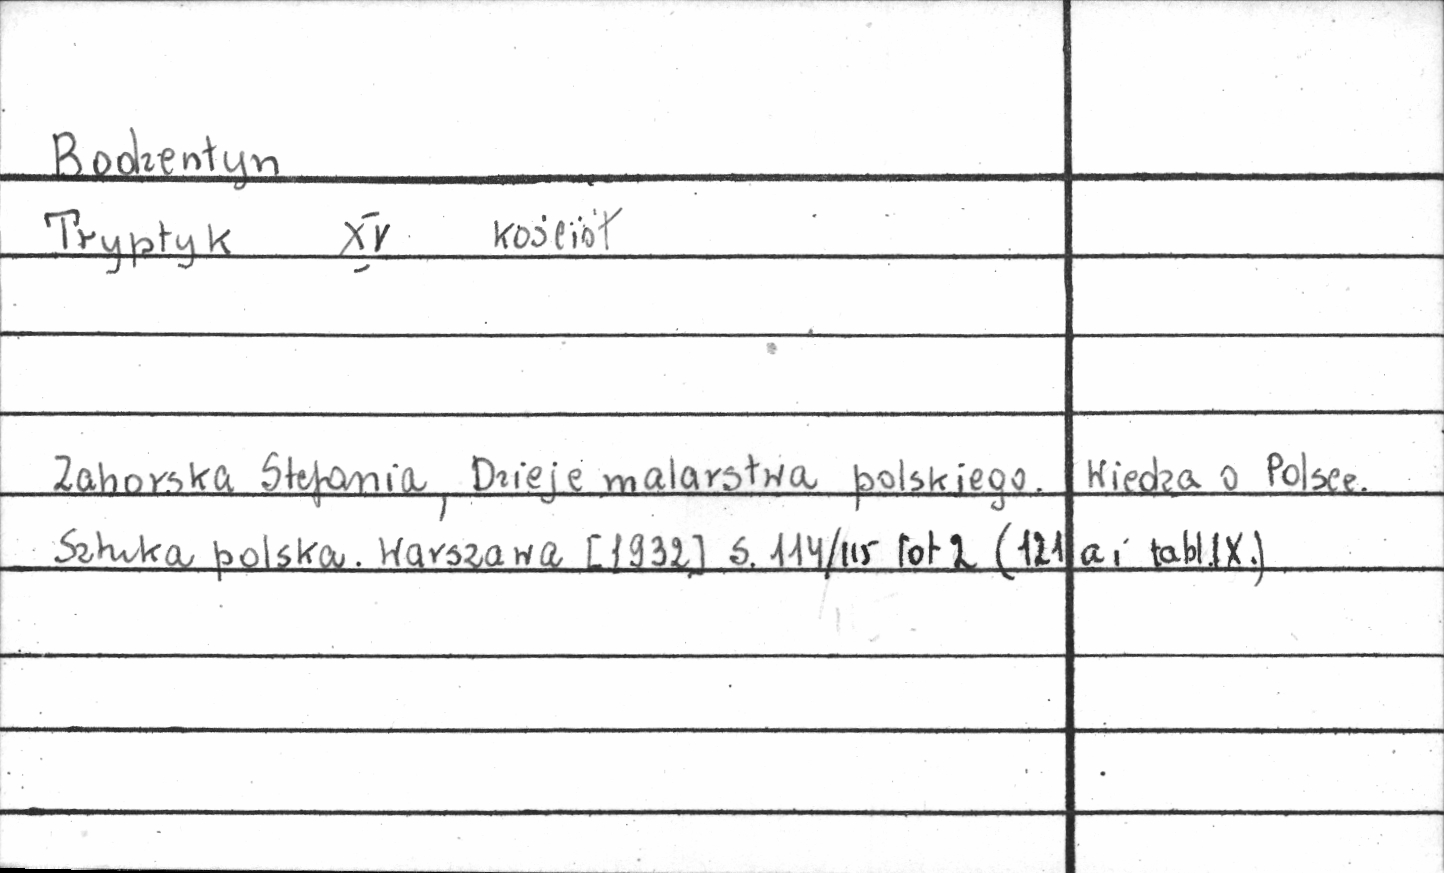 Bodzentyn
Tryptyk XV kościół
Zahorska Stefania, Dzieje malarstwa polskiego. Wiedza o Polsce.
Sztuka polska. Warszawa [1932] s. 114/115 fot 2 (121 a i tabl.IX.)